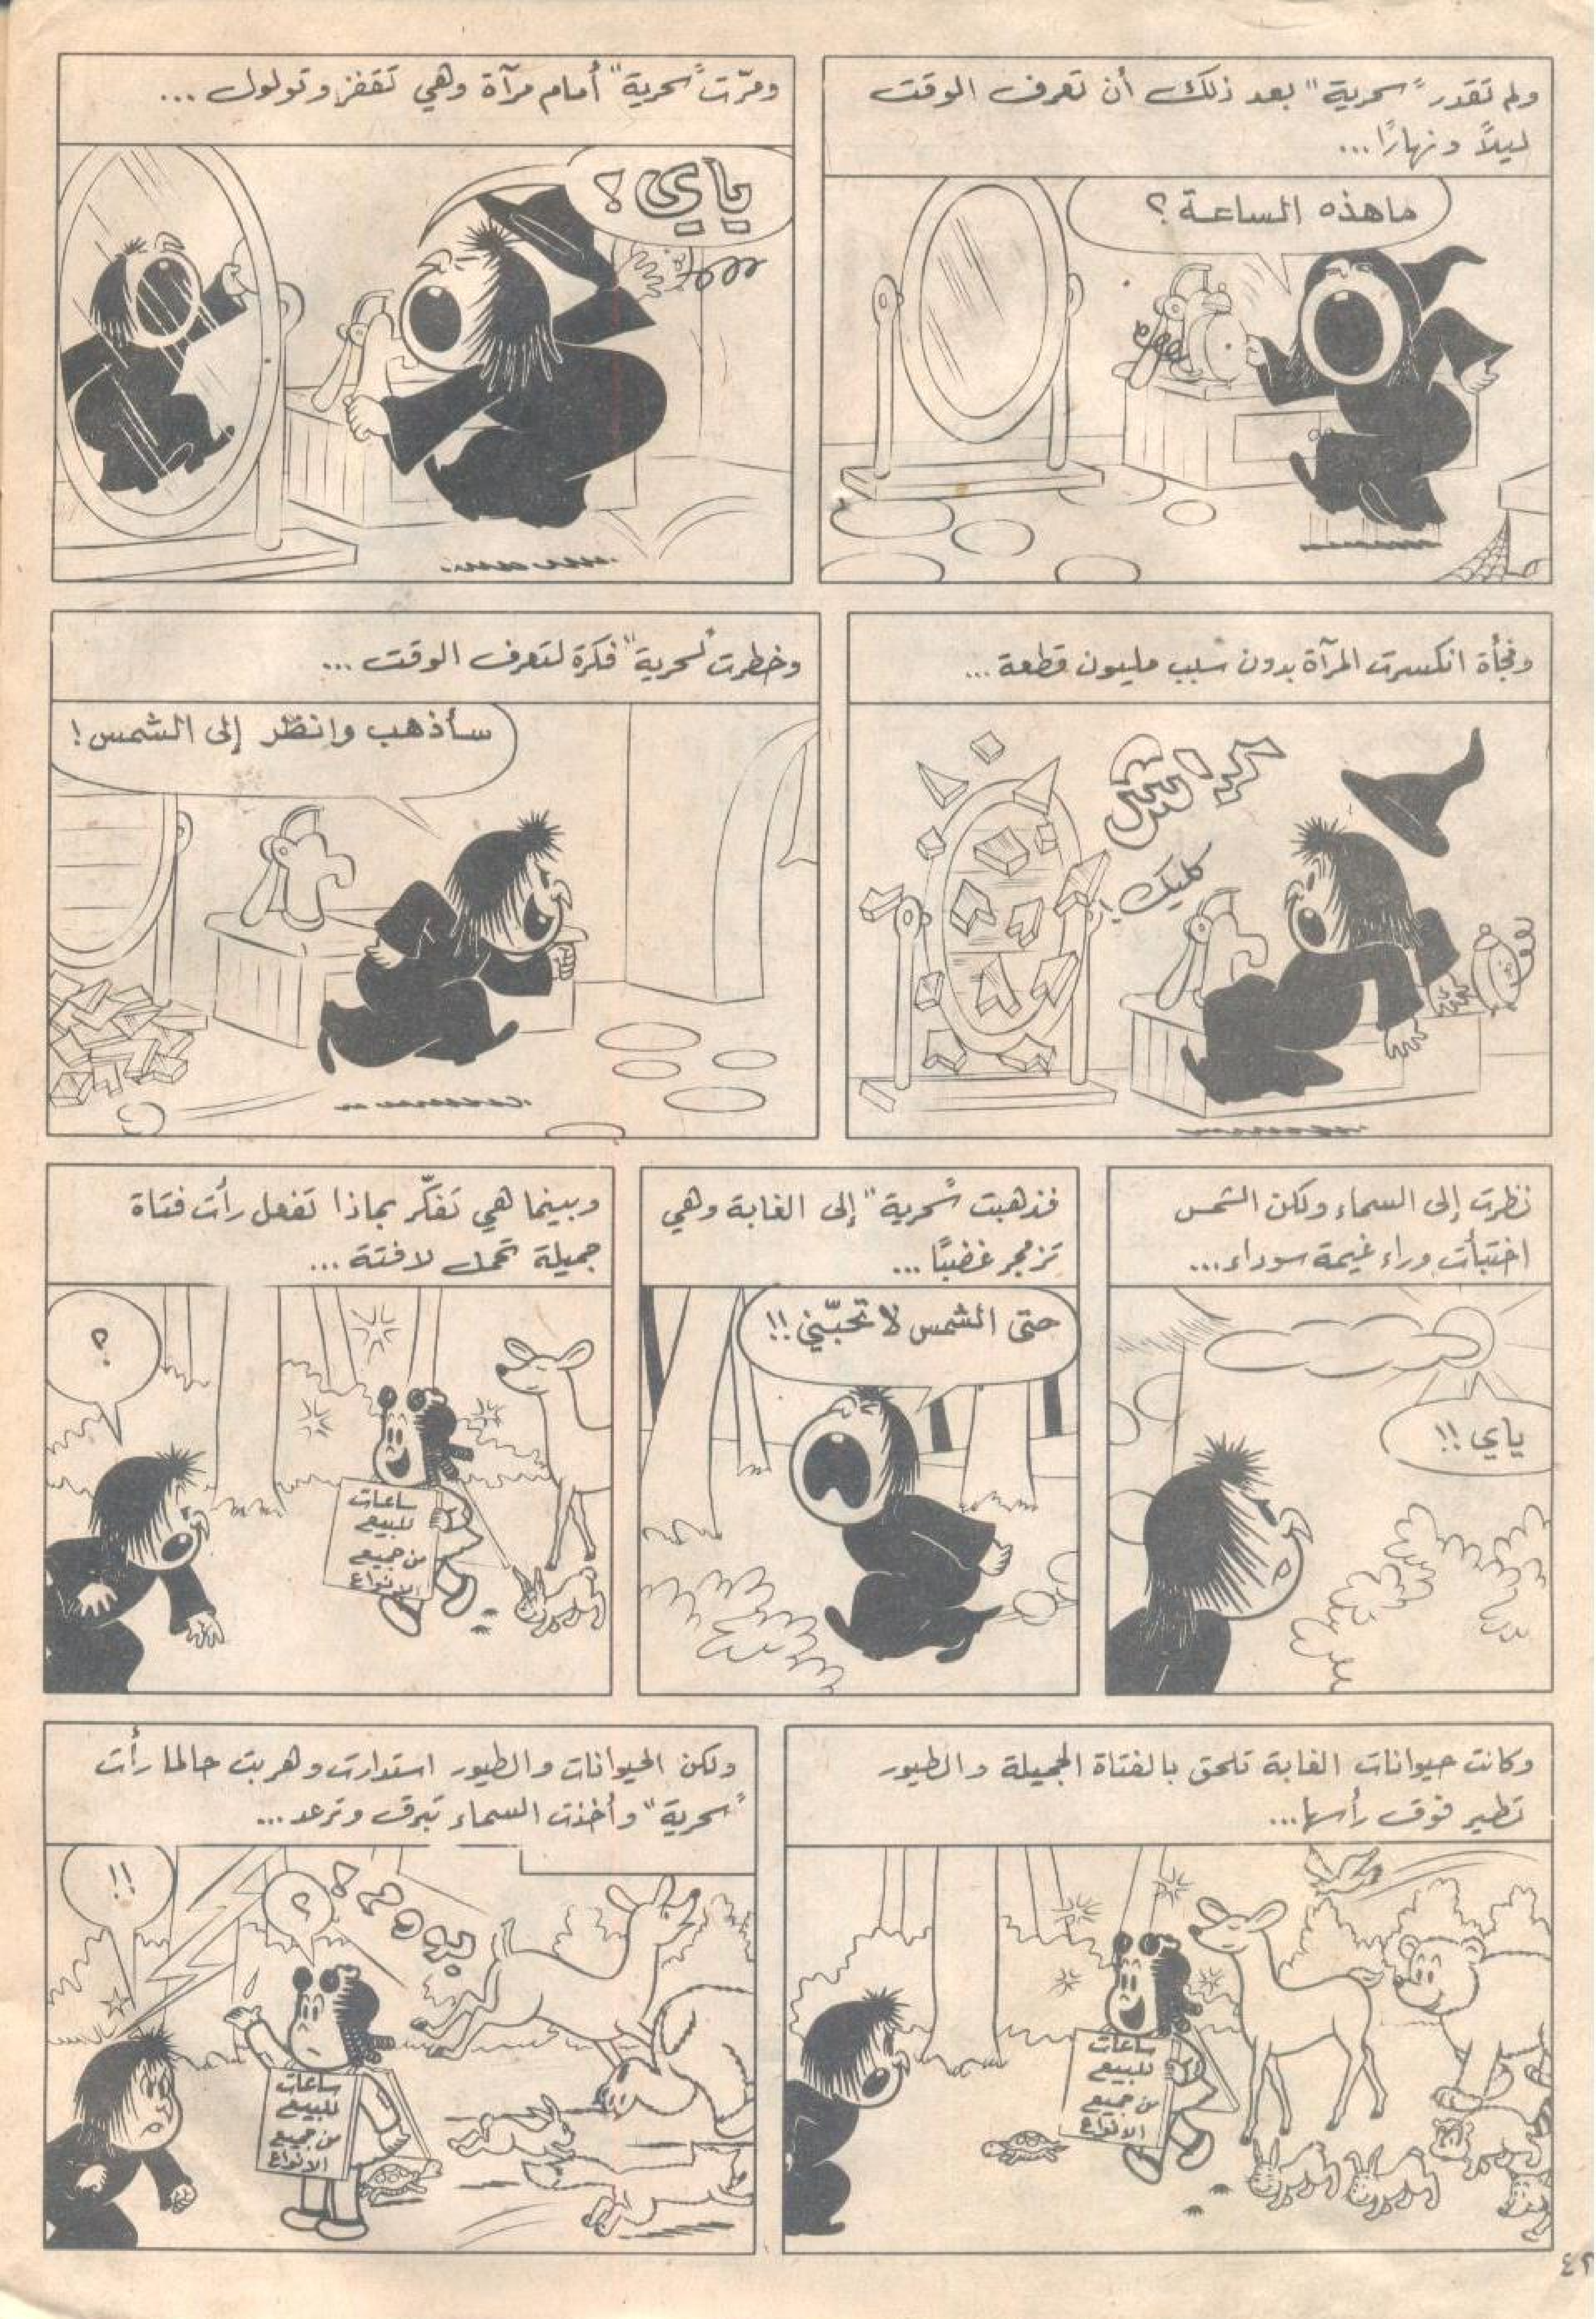 ولم تقدر "سحرية" بعد ذلك أن تعرف الوقت
ليلاً ونهارًا...
ماهذه الساعة؟
ومرّت "سحرية" أمام مرآة وهي تقفز وتولول...
ياي!
وفجأة انكسرت المرآة بدون سبب مليون قطعة...
كراش
كليك!
وخطرت "لسحرية" فكرة لتعرف الوقت...
سأذهب وانظر إلى الشمس!
نظرت إلى السماء ولكن الشمس
اختبأت وراء غيمة سوداء...
ياي!!
فذهبت "سحرية" إلى الغابة وهي
تزمجر غضبًا...
حتى الشمس لا تحبّني!!
وبينما هي تفكّر بماذا تفعل رأت فتاة
جميلة تحمل لافتة...
؟
ساعات
للبيع
من جميع
الانواع
وكانت حيوانات الغابة تلحق بالفتاة الجميلة والطيور
تطير فوق رأسها...
ساعات
للبيع
من جميع
الانواع
ولكن الحيوانات والطيور استدارت وهربت حالما رأت
"سحرية" وأخذت السماء تبرق وترعد...
!!
؟
بووم!
ساعات
للبيع
من جميع
الانواع
٤٢